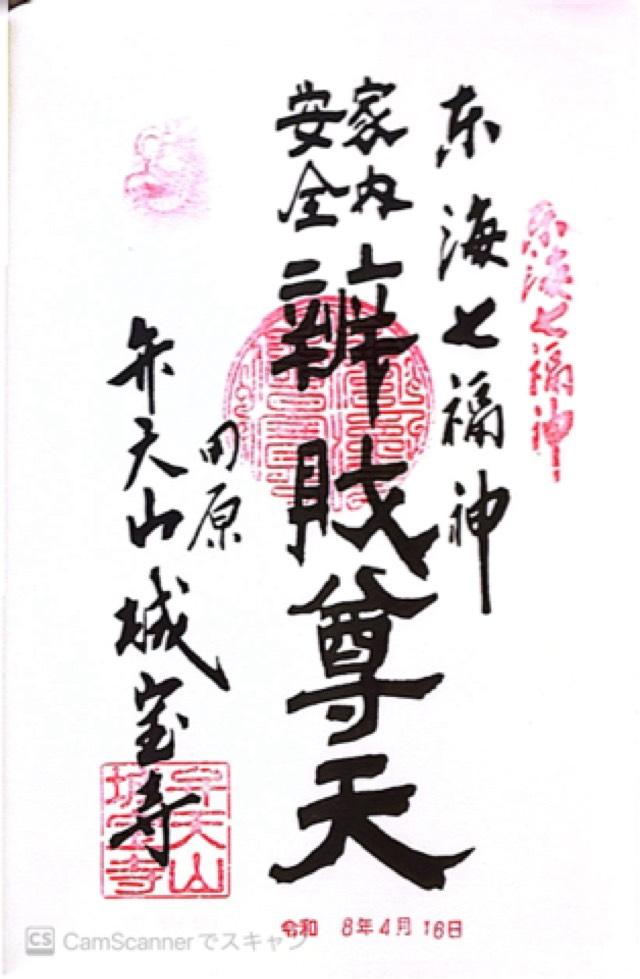 東海七福神
东海七福神
家内
安全
辨財尊天
田原
弁天山城宝寺
弁天山
城宝寺
令和 8年4月16日
CS CamScannerでスキャン